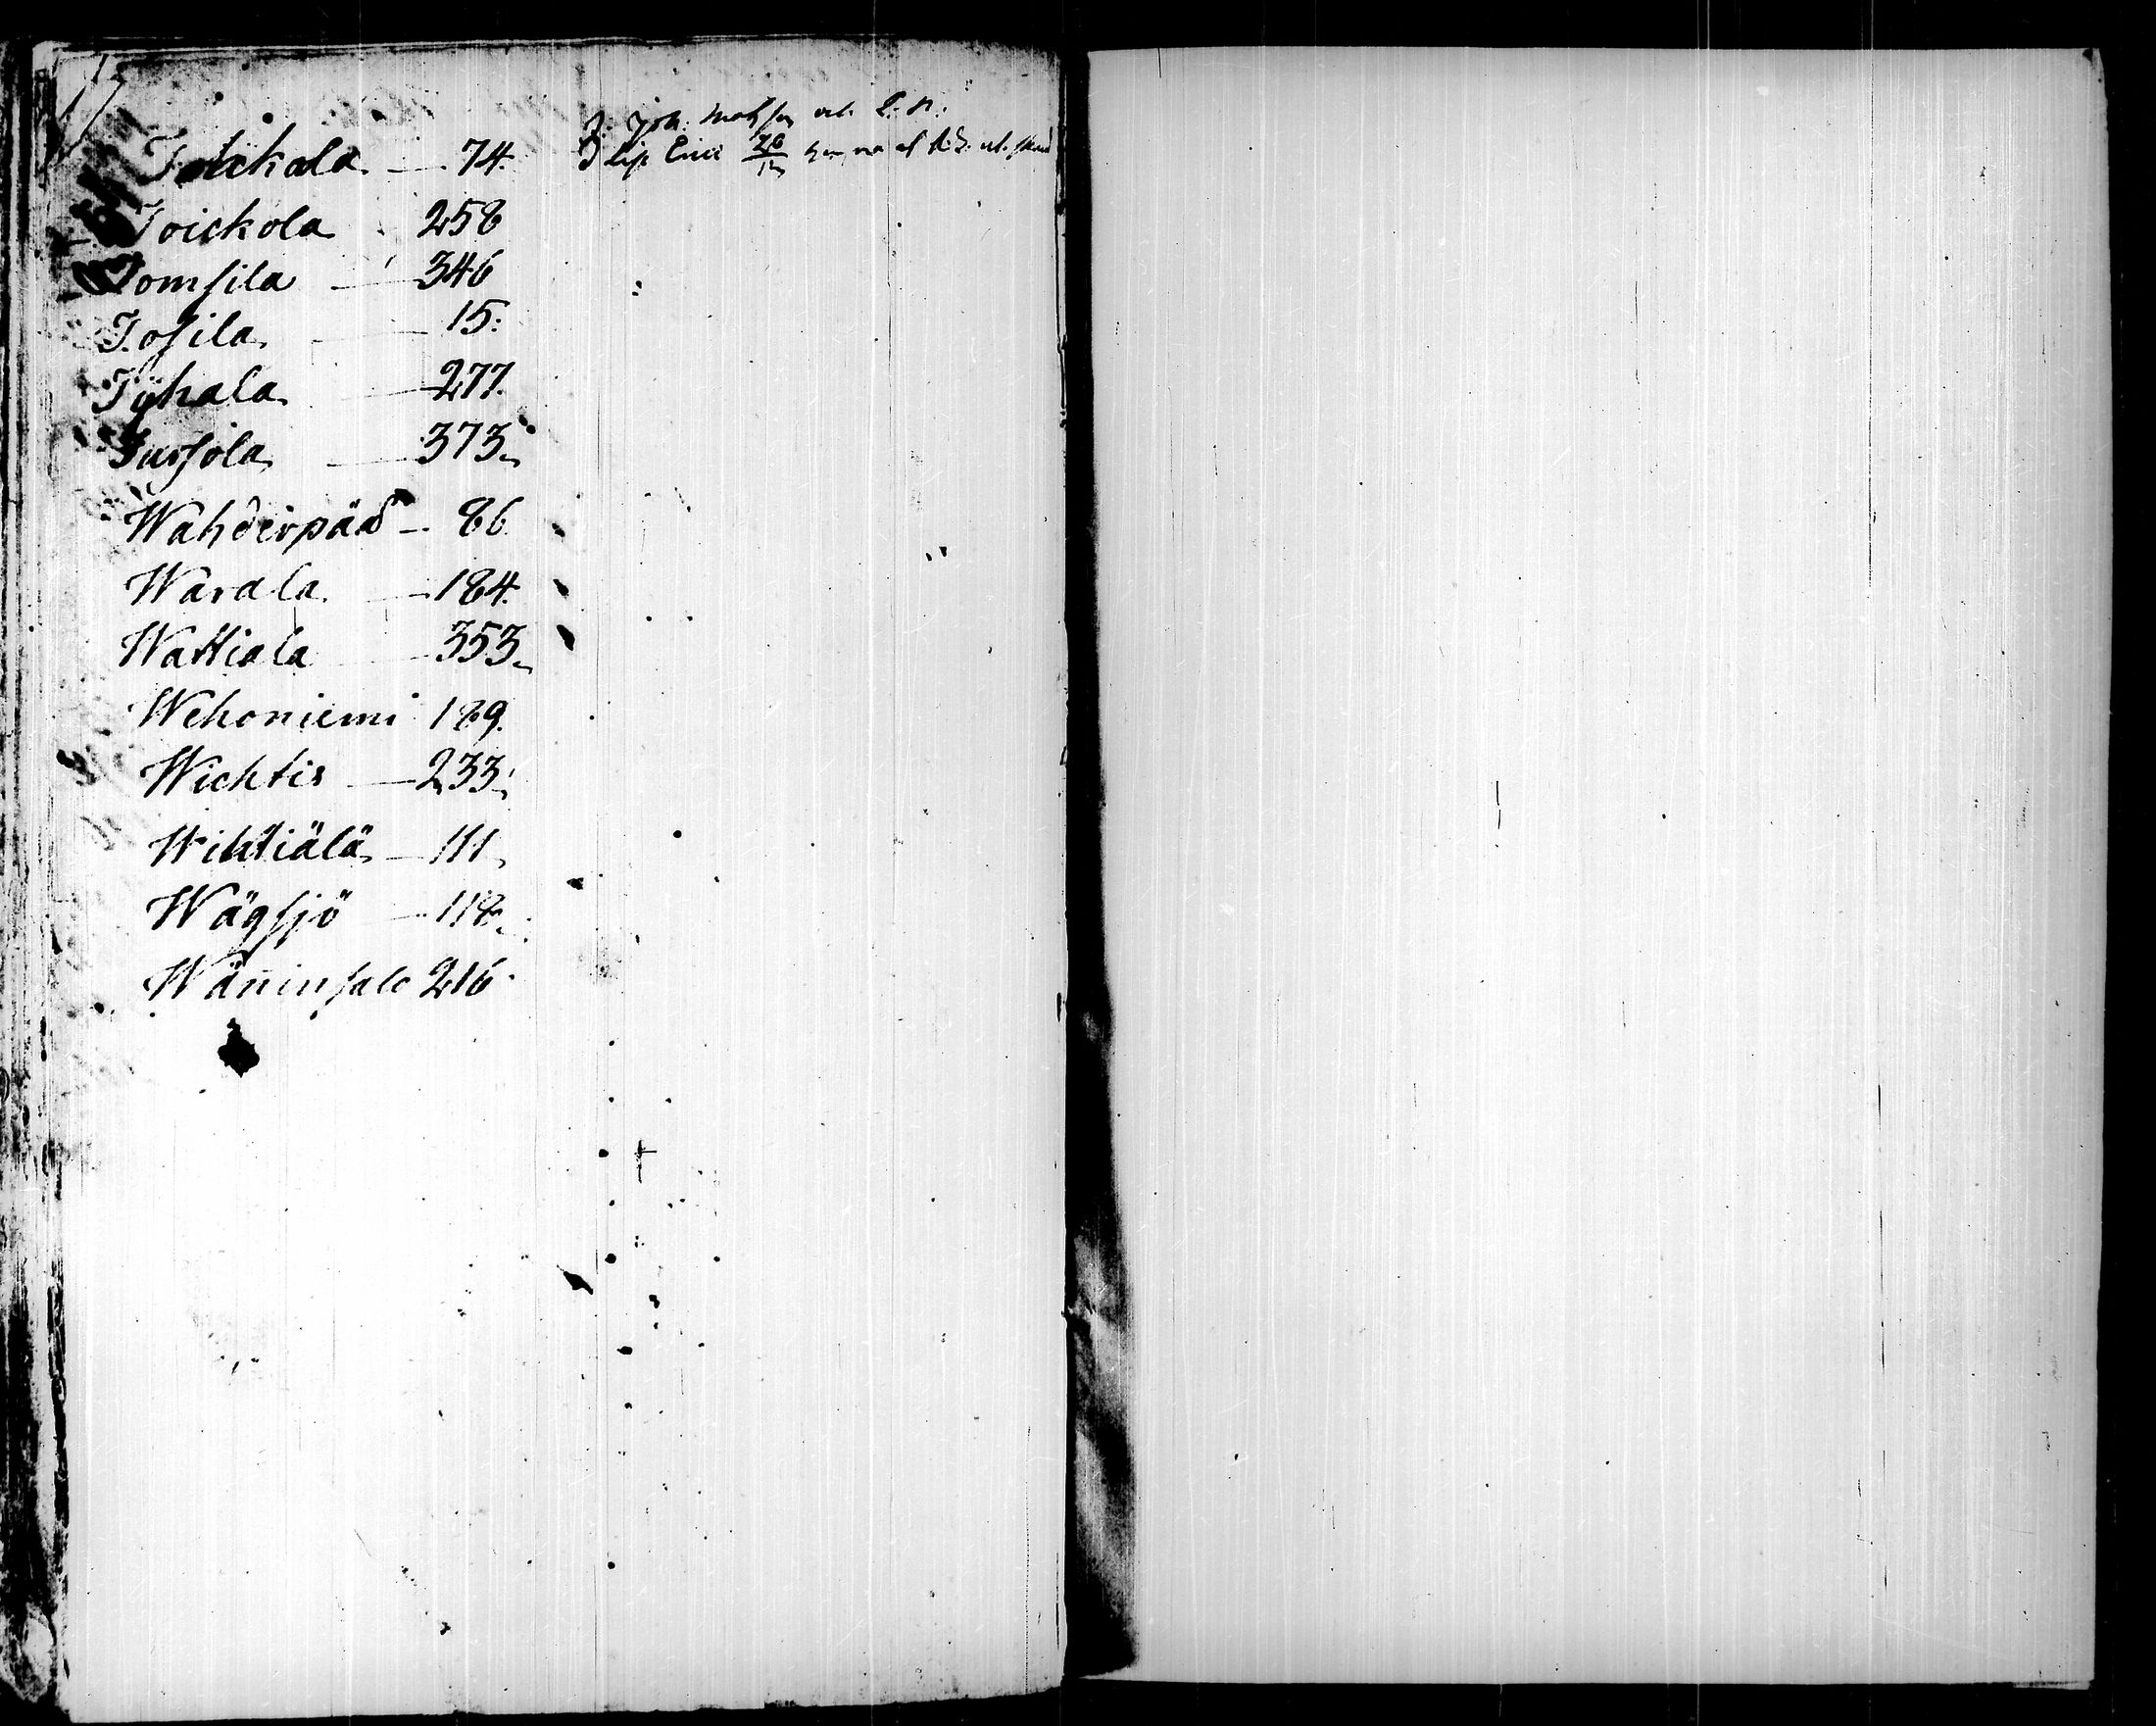 Toickala 74.
Toickola 258
Tomsila 346
Tosila 15.
Tÿhala 277.
Tursola 373.
Wahderpää 86
Warala 184.
Wattiala 353.
Wehoniemi 189.
Wichtis 233.
Wihtiälä 111.
Wägsjö 118.
Wäninsalo 216.
Joh: Matsson och
Eric 20/12